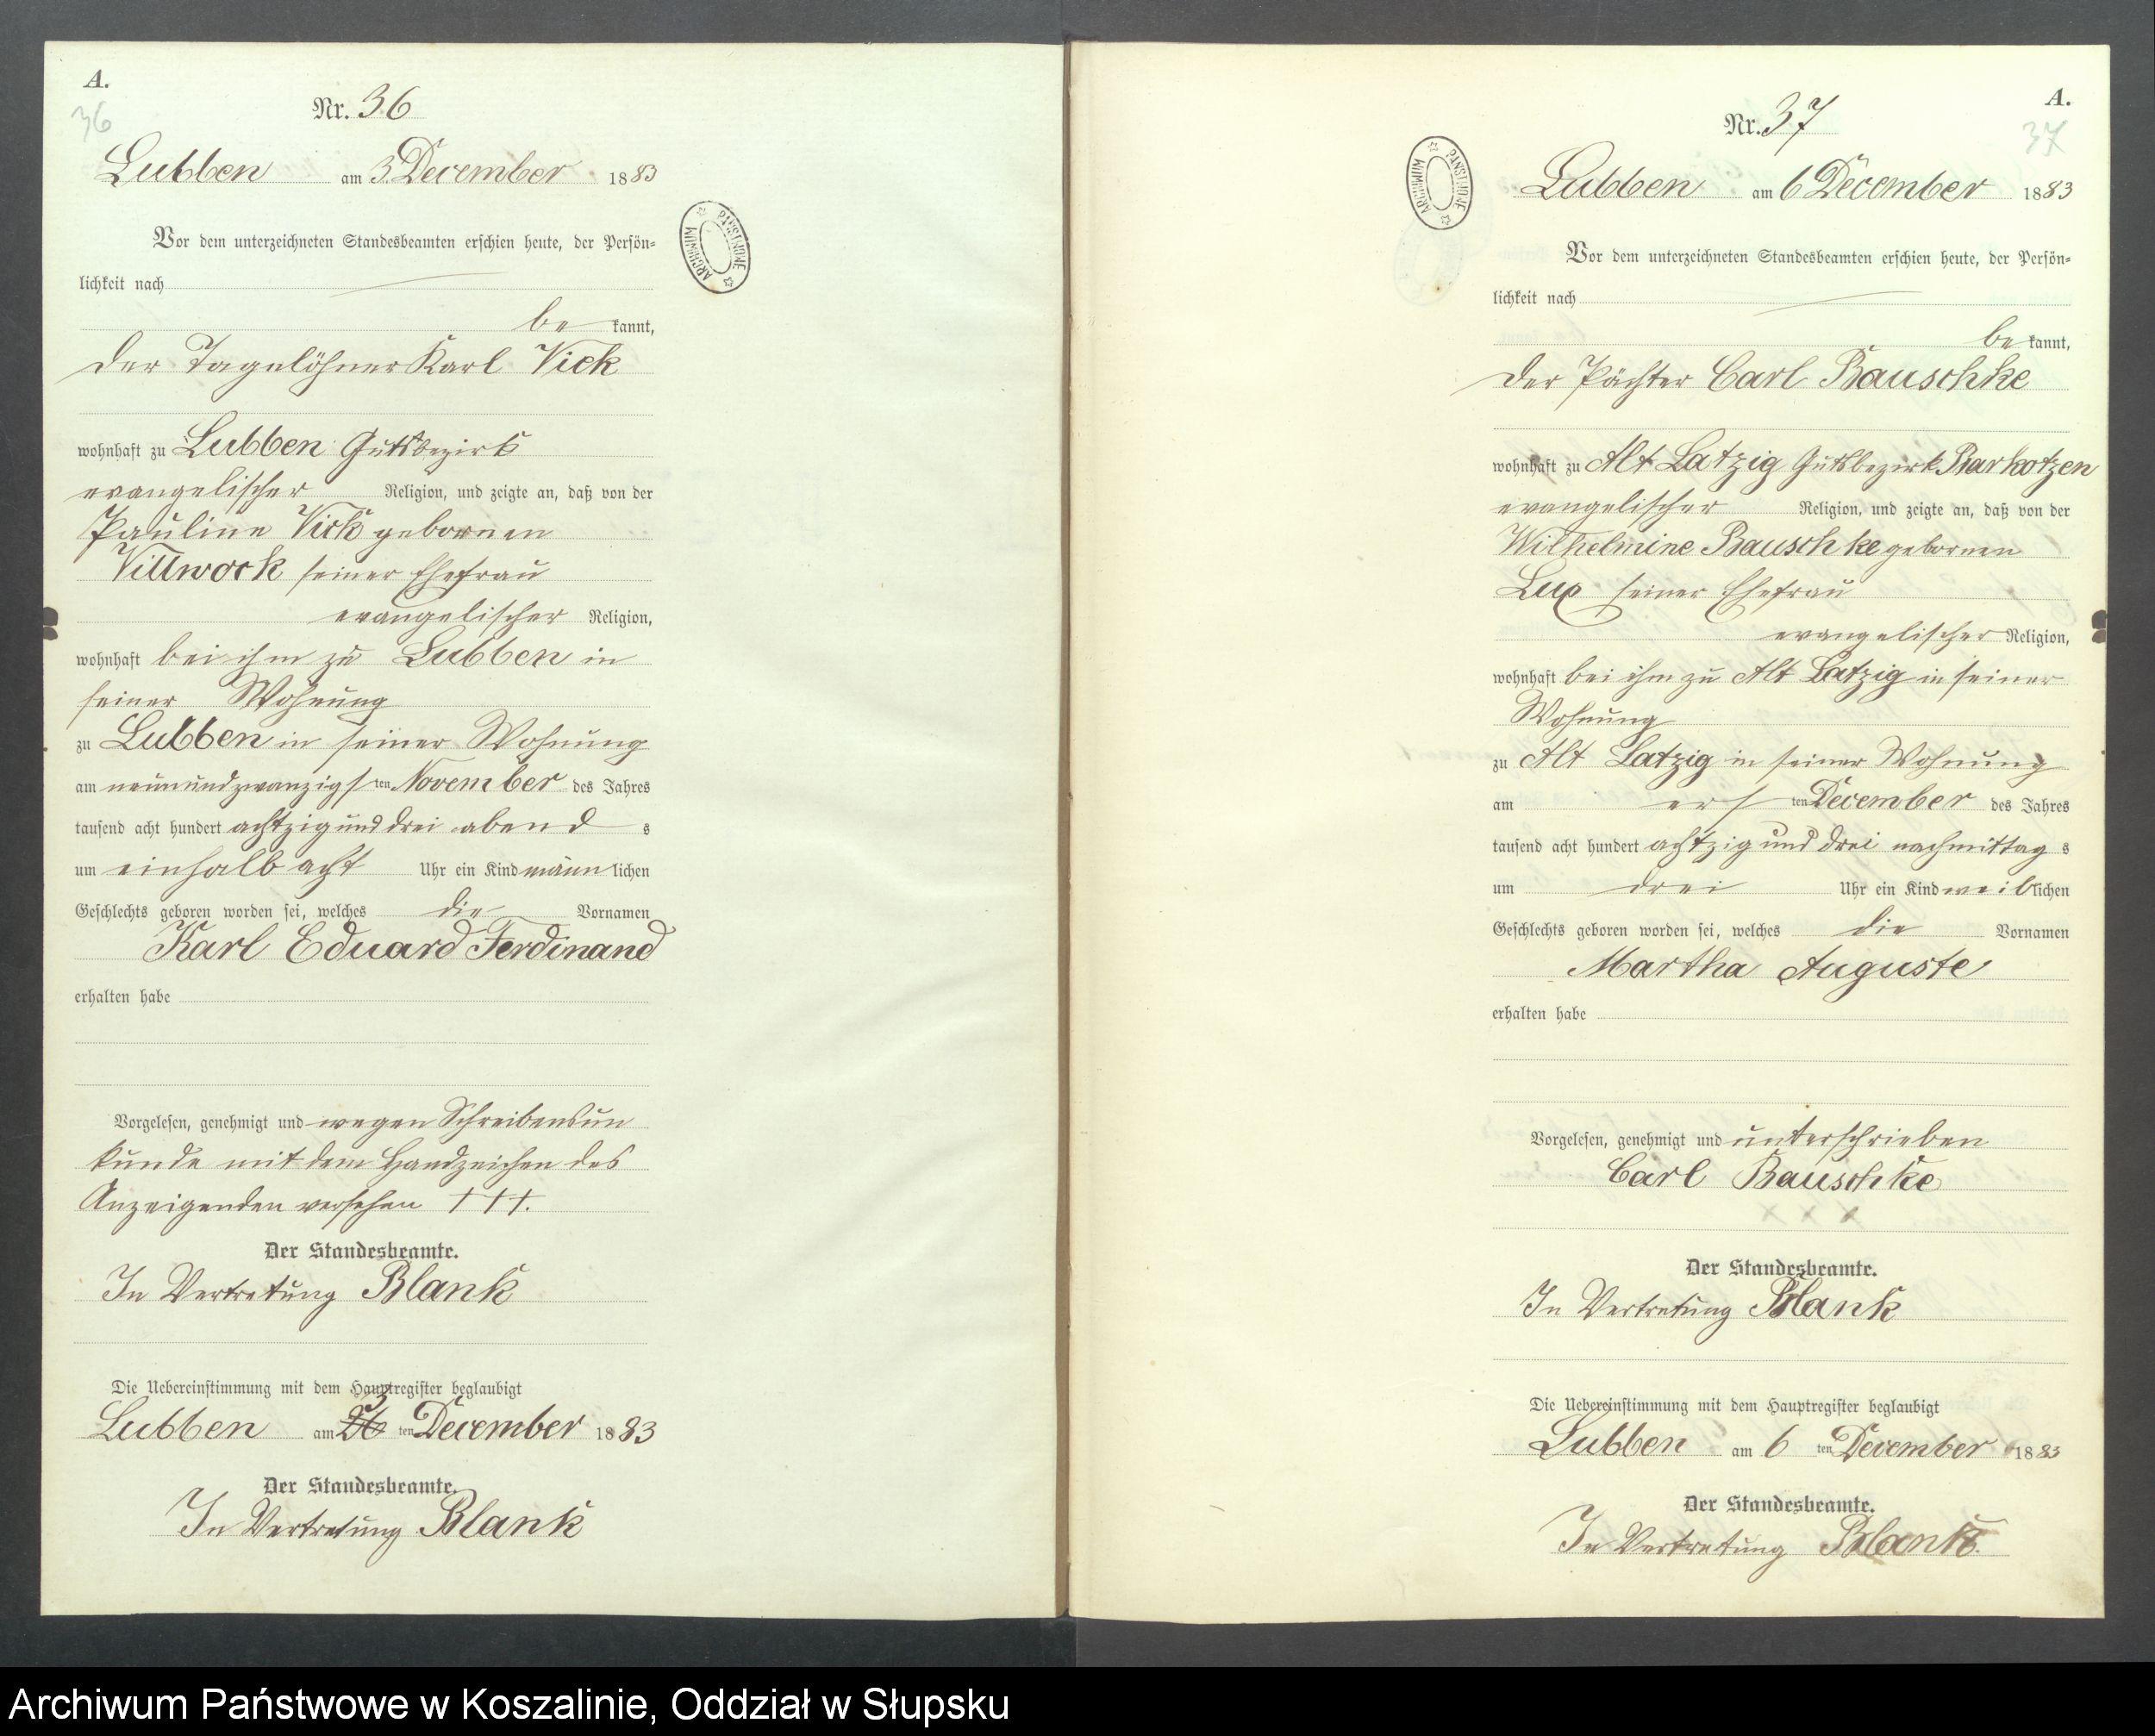 A.
36
Nr. 36
Lubben am 3. December 1883
Vor dem unterzeichneten Standesbeamten erschien heute, der Persön=
lichkeit nach
be kannt,
der Tagelöhner Karl Vick
wohnhaft zu Lubben Gutsbezirk
evangelischer Religion, und zeigte an, daß von der
Pauline Vick gebornen
Villwock seiner Ehefrau
evangelischer Religion,
wohnhaft bei ihm zu Lubben in
seiner Wohnung
zu Lubben in seiner Wohnung
am neunundzwanzigsten November des Jahres
tausend acht hundert achtzig und drei abend s
um einhalb acht Uhr ein Kind männlichen
Geschlechts geboren worden sei, welches die Vornamen
Karl Eduard Ferdinand
erhalten habe
Vorgelesen, genehmigt und wegen Schreibensun
kunde mit dem Handzeichen des
Anzeigenden versehen +++.
Der Standesbeamte.
In Vertretung Blank
Die Uebereinstimmung mit dem Hauptregister beglaubigt
3
Lubben am ten December 1883
Der Standesbeamte.
In Vertretung Blank
ARCHIWUM PAŃSTWOWE
A.
37
Nr. 37
Lubben am 6 December 1883
Vor dem unterzeichneten Standesbeamten erschien heute, der Persön=
lichkeit nach
be kannt,
der Pächter Carl Bauschke
wohnhaft zu Alt Latzig Gutsbezirk Barkotzen
evangelischer Religion, und zeigte an, daß von der
Wilhelmine Bauschke gebornen
Lux seiner Ehefrau
evangelischer Religion,
wohnhaft bei ihm zu Alt Latzig in seiner
Wohnung
zu Alt Latzig in seiner Wohnung
am ersten December des Jahres
tausend acht hundert achtzig und drei nachmittag s
um drei Uhr ein Kind weiblichen
Geschlechts geboren worden sei, welches die Vornamen
Martha Auguste
erhalten habe
Vorgelesen, genehmigt und unterschrieben
Carl Bauschke
x x x
Der Standesbeamte.
In Vertretung Blank
Die Uebereinstimmung mit dem Hauptregister beglaubigt
Lubben am 6 ten December 1883
Der Standesbeamte.
In Vertretung Blank.
ARCHIWUM PAŃSTWOWE
Archiwum Państwowe w Koszalinie, Oddział w Słupsku